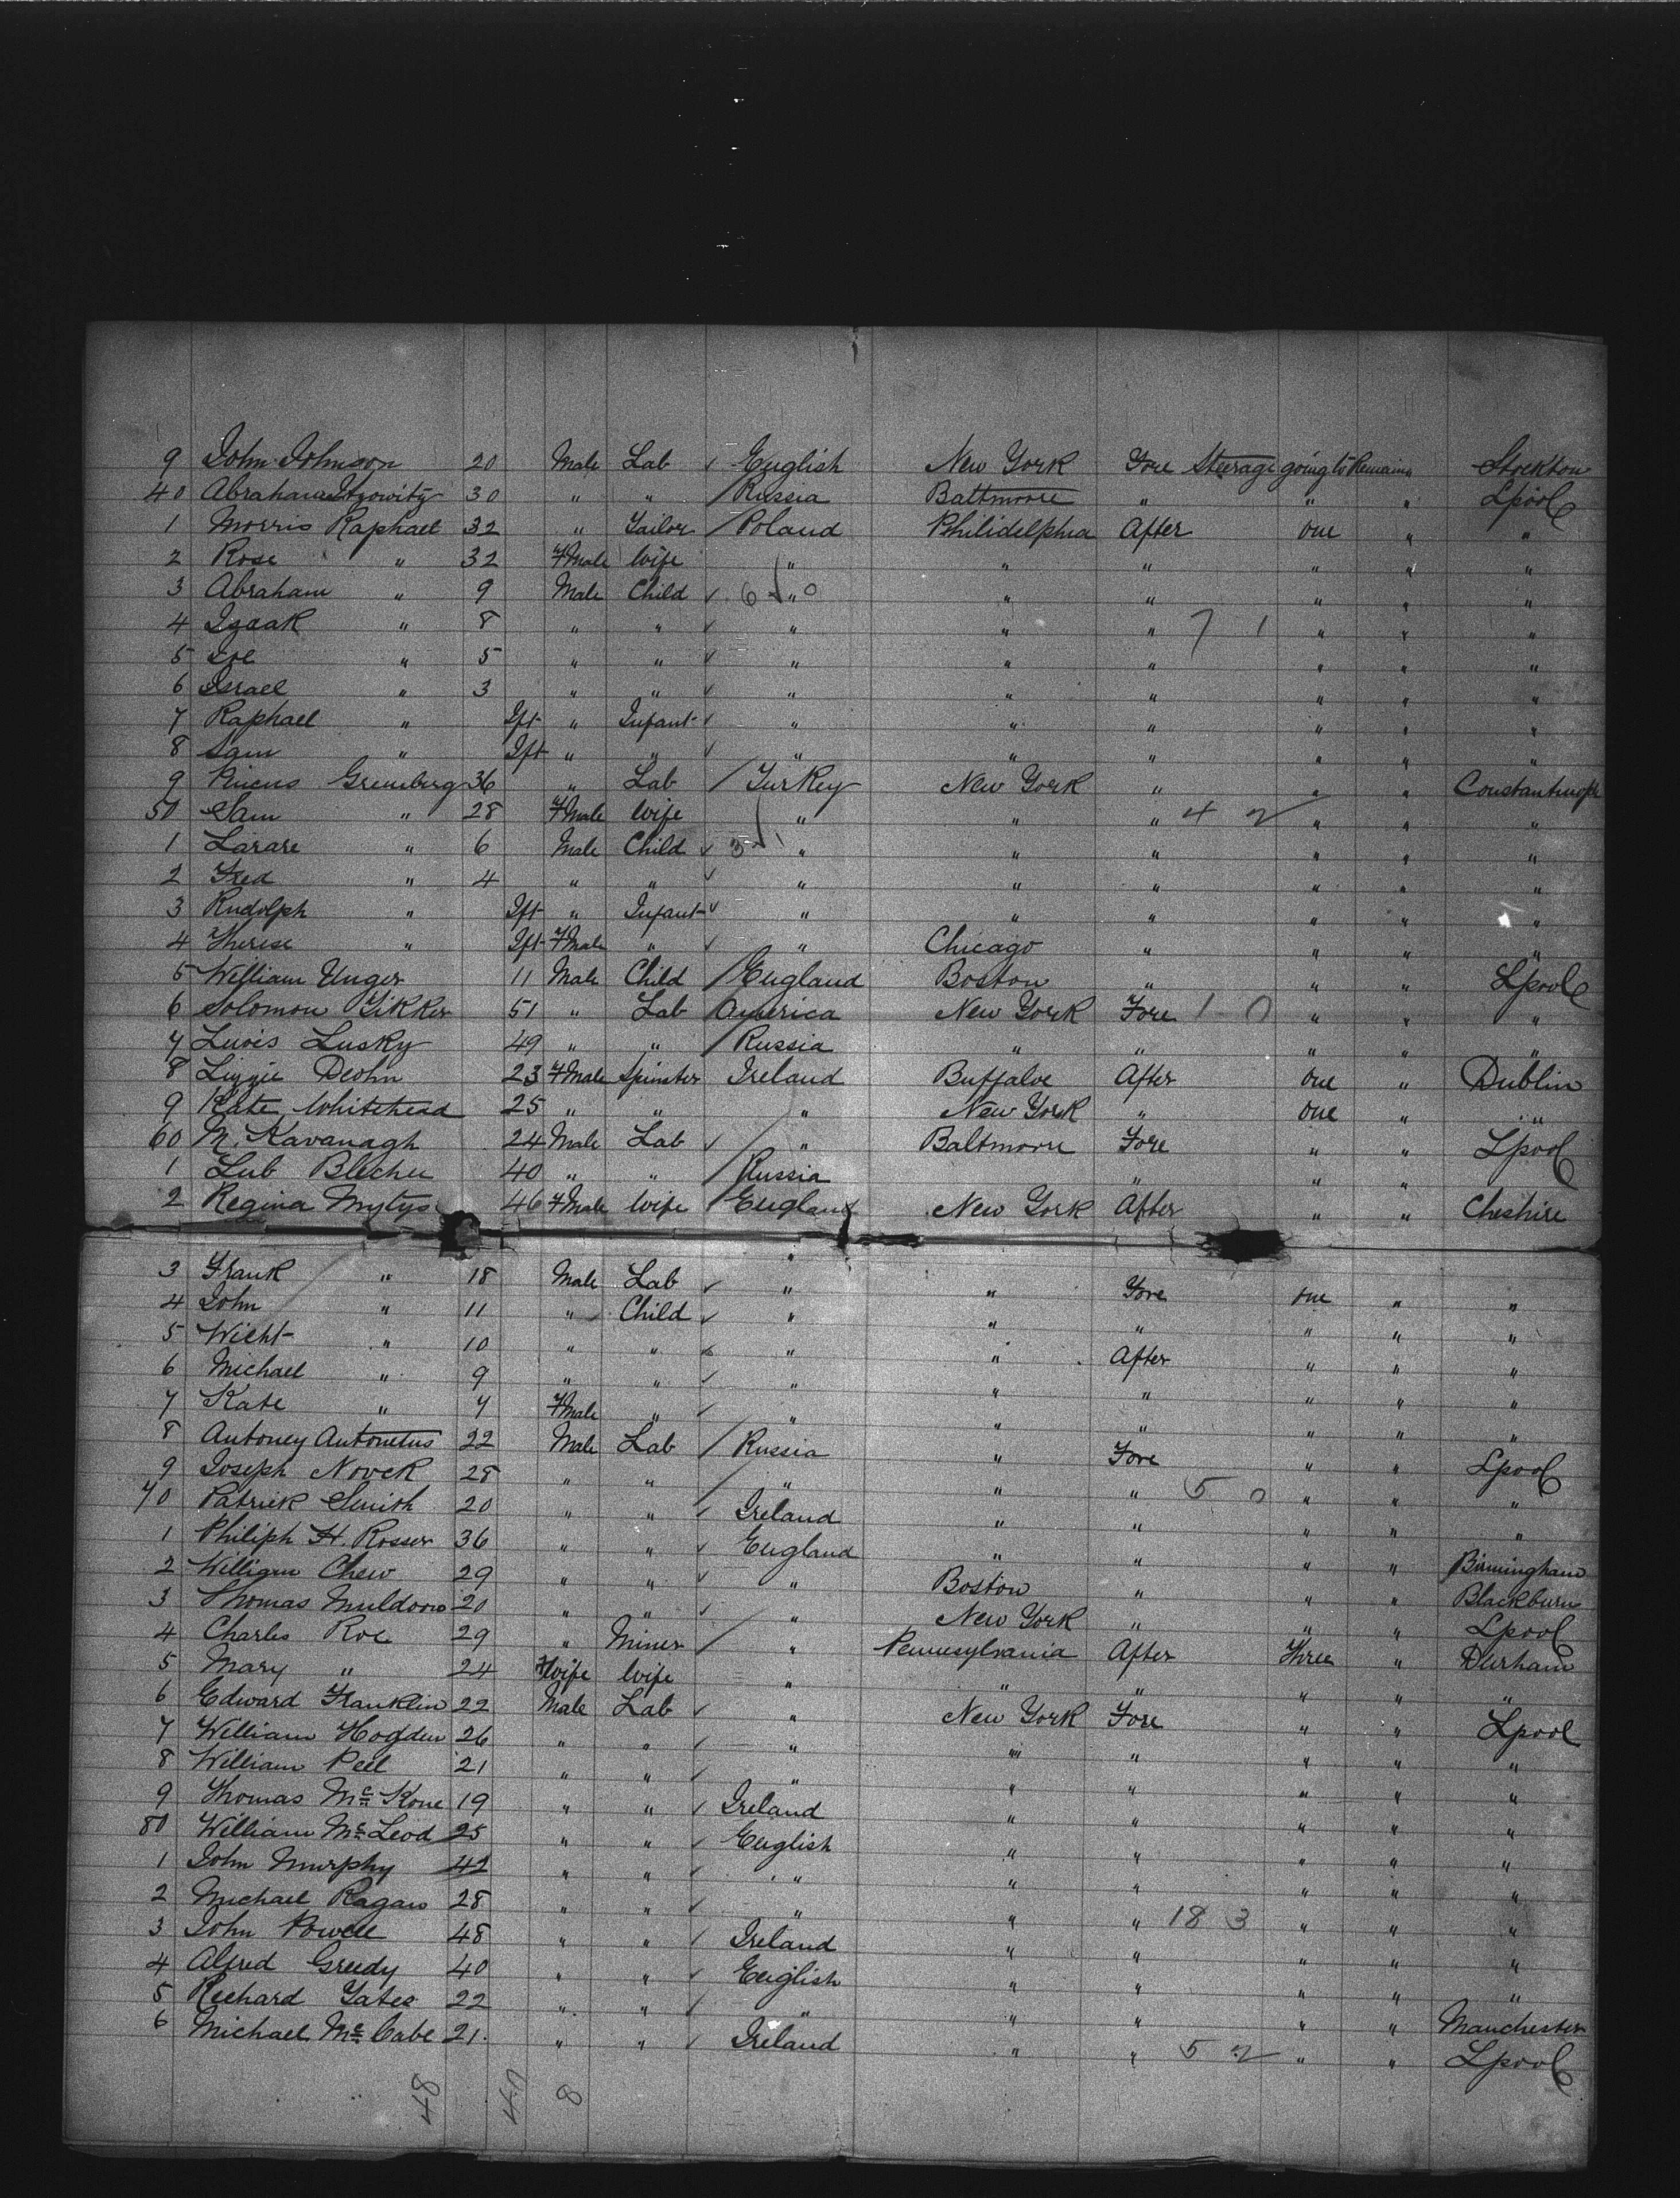 9 John Johnson 20 Male Lab ✓ English New York Fore Steerage going to Remain " Stockton
40 Abraham Itzowitz 30 " " / Russia Baltmore " " " Lpool
1 Morris Raphael 32 " Tailor / Poland Philidelphia After one " "
2 Rose " 32 FMale Wife " " " " " "
3 Abraham " 9 Male Child ✓ 6 " 0 " " " " "
4 Izaak " 8 " " ✓ " " " 7 1 " " "
5 Joe " 5 " " ✓ " " " " " "
6 Israel " 3 " " ✓ " " " " " "
7 Raphael " Ift " Infant ✓ " " " " " "
8 Sam " Ift " " ✓ " " " " " "
9 Greenberg 36 " Lab / Turkey New York " " " Constantinople
50 Sam " 28 FMale Wife " " " 4 2 " " "
1 Larare " 6 Male Child ✓ 3 1 " " " " " "
2 Fred " 4 " " ✓ " " " " " "
3 Rudolph " Ift " Infant ✓ " " " " " "
4 Therese " Ift FMale " ✓ " Chicago " " " "
5 William Unger 11 Male Child / England Boston " " " Lpool
6 Solomon Gikker 51 " Lab / America New York Fore 1 0 " " "
7 Luois Lusky 49 " " / Russia " " " " "
8 Lizzie Deohn 23 FMale Spinster Ireland Buffaloe After one " Dublin
9 Kate Whitehead 25 " " " New York " one " "
60 M. Kavanagh 24 Male Lab ✓ " Baltmore Fore " " Lpool
1 Lub Blecher 40 " " / Russia " " " " "
2 Regina Mytys 46 FMale Wife / England New York After " " Cheshire
3 Frank " 18 Male Lab ✓ " " Fore one " "
4 John " 11 " Child ✓ " " " " " "
5 Wicht " 10 " " ✓ " " After " " "
6 Michael " 9 " " ✓ " " " " " "
7 Kate " 7 FMale " ✓ " " " " " "
8 Antoney Antonetus 22 Male Lab / Russia " Fore " " Lpool
9 Joseph Novek 28 " " / " " " 5 0 " " "
70 Patrick Smith 20 " " ✓ Ireland " " " " "
1 Philiph H. Rosser 36 " " ✓ England " " " " Birmingham
2 William Chew 29 " " ✓ " Boston " " " Blackburn
3 Thomas Muldoon 20 " " ✓ " New York " " " Lpool
4 Charles Roe 29 " Miner / " Pennesylvania After Three " Durham
5 Mary " 24 Wife Wife " " " " " "
6 Edward Franklin 22 Male Lab ✓ " New York Fore " " Lpool
7 William Hogden 26 " " ✓ " " " " " "
8 William Peel 21 " " ✓ " " " " " "
9 Thomas McKone 19 " " ✓ Ireland " " " " "
80 William McLeod 25 " " ✓ English " " " " "
1 John Murphy 42 " " ✓ " " " " " "
2 Michael Ragan 28 " " ✓ " " " 18 3 " " "
3 John Powell 48 " " ✓ Ireland " " " " "
4 Alfred Greedy 40 " " ✓ English " " " " "
5 Richard Yates 22 " " ✓ " " " " " Manchester
6 Michael McCabe 21 " " ✓ Ireland " " 5 2 " " Lpool
48 40 8